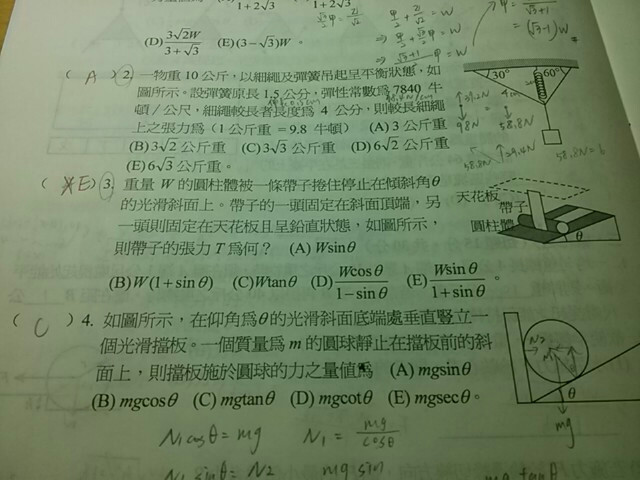 1+2√3
1+2√3
(D) 3√2W / 3+√3 (E)(3−√3)W。
= (√3−1)W
( A ) 2. 一物重 10 公斤,以細繩及彈簧吊起呈平衡狀態,如
圖所示。設彈簧原長 1.5 公分,彈性常數爲 7840 牛
頓/公尺,細繩較長者長度爲 4 公分,則較長細繩
上之張力爲(1 公斤重=9.8 牛頓) (A) 3 公斤重
(B)3√2 公斤重 (C)3√3 公斤重 (D)6√2 公斤重
(E)6√3 公斤重。
30° 60°
4cm
98N 58.8N
( E ) 3. 重量 W 的圓柱體被一條帶子捲住停止在傾斜角θ
的光滑斜面上。帶子的一頭固定在斜面頂端,另
一頭則固定在天花板且呈鉛直狀態,如圖所示,
則帶子的張力 T 爲何? (A) Wsinθ
(B)W(1+sinθ) (C)Wtanθ (D) Wcosθ / 1−sinθ (E) Wsinθ / 1+sinθ。
天花板
帶子
圓柱體
θ
( C ) 4. 如圖所示,在仰角爲θ的光滑斜面底端處垂直豎立一
個光滑擋板。一個質量爲 m 的圓球靜止在擋板前的斜
面上,則擋板施於圓球的力之量值爲 (A) mgsinθ
(B) mgcosθ (C) mgtanθ (D) mgcotθ (E) mgsecθ。
N2
θ
mg
N1cosθ = mg N1 = mg / cosθ
N1 sinθ = N2 mg sin
mg tanθ